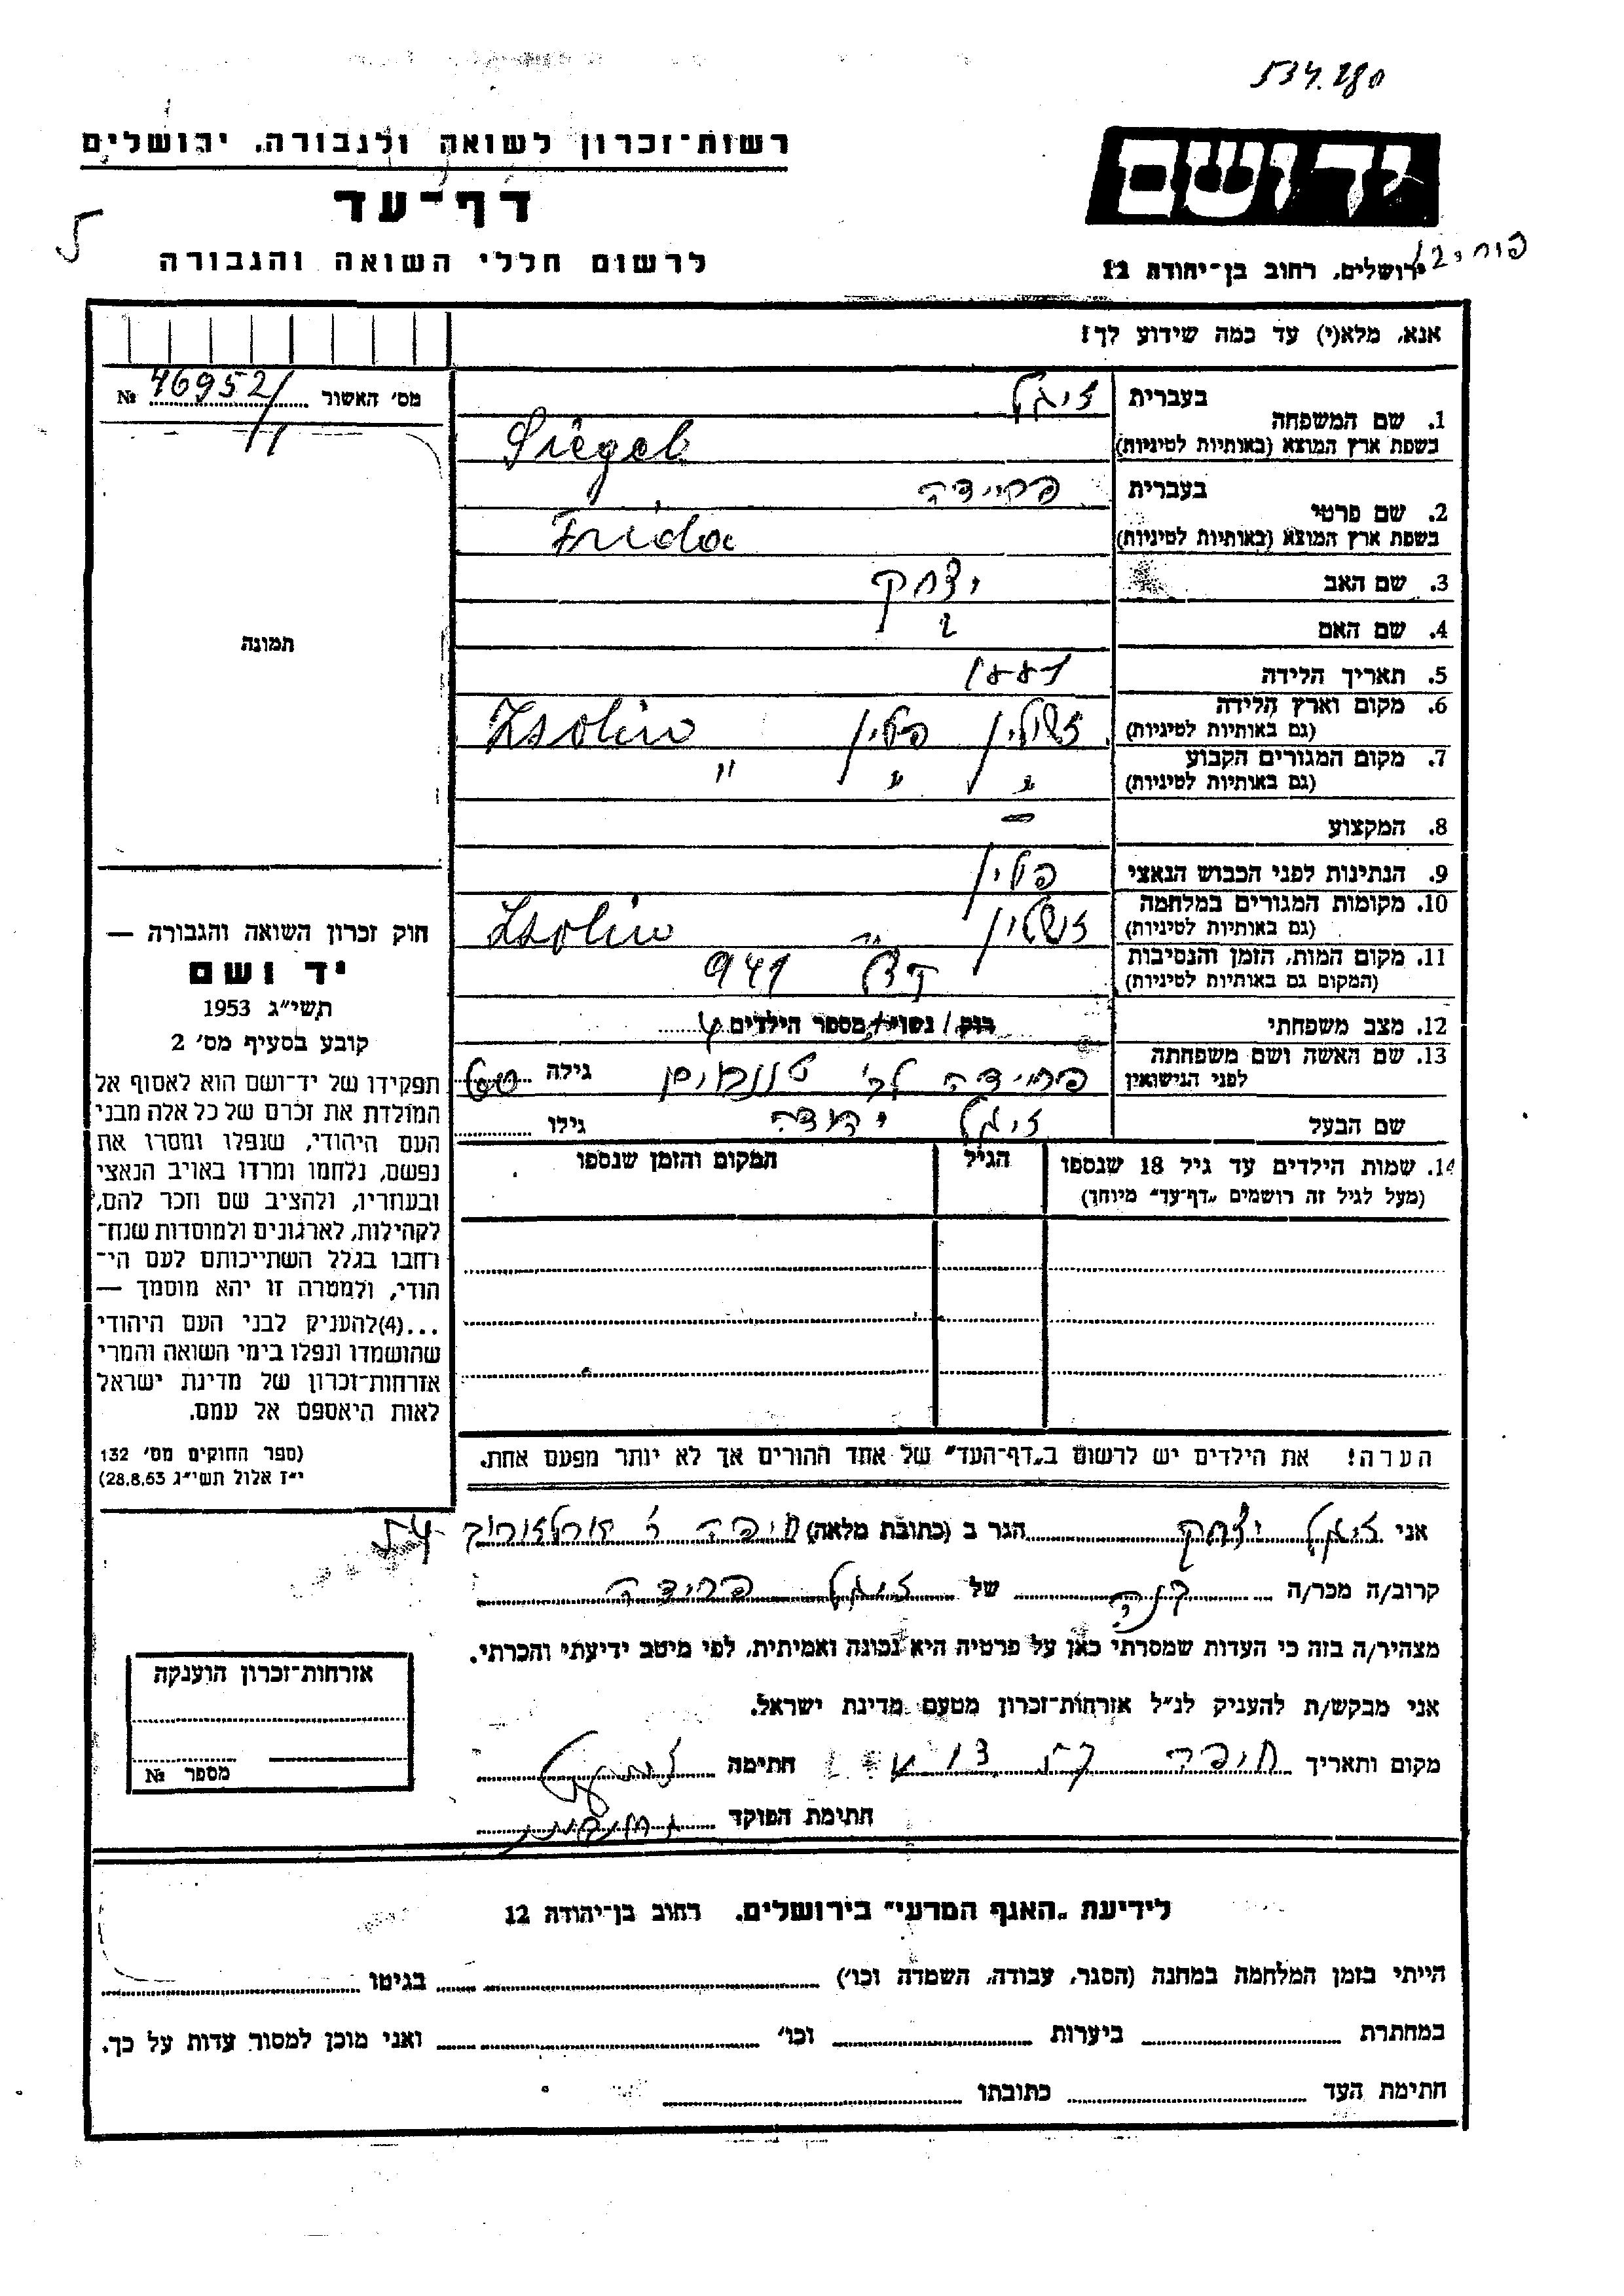 534.280
רשות־זכרון לשואה ולגבורה, ירושלים
יד ושם
דף־עד
לרשום חללי השואה והגבורה
ירושלים, רחוב בן־יהודה 12
אנא, מלא(י) עד כמה שידוע לך!
מס׳ האשור 46952/ №
1. שם המשפחה
בעברית זיגל
בשפת ארץ המוצא (באותיות לטיניות) Siegel
2. שם פרטי
בעברית פריידה
בשפת ארץ המוצא (באותיות לטיניות) Frida
3. שם האב יצחק
4. שם האם ?
5. תאריך הלידה
6. מקום וארץ הלידה פולין Zsolin
(גם באותיות לטיניות)
7. מקום המגורים הקבוע " " "
(גם באותיות לטיניות)
8. המקצוע –
9. הנתינות לפני הכבוש הנאצי פולין
10. מקומות המגורים במלחמה Zsolin
(גם באותיות לטיניות)
11. מקום המות, הזמן והנסיבות 941
(המקום גם באותיות לטיניות)
12. מצב משפחתי רוק / נשוי / מספר הילדים 4
13. שם האשה ושם משפחתה פריידה גילה
לפני הנישואין
שם הבעל זיגל יהודה גילו
14. שמות הילדים עד גיל 18 שנספו הגיל המקום והזמן שנספו
(מעל לגיל זה רושמים „דף־עד״ מיוחד)
הערה! את הילדים יש לרשום ב„דף־העד״ של אחד ההורים אך לא יותר מפעם אחת.
תמונה
חוק זכרון השואה והגבורה —
יד ושם
תשי״ג 1953
קובע בסעיף מס׳ 2
תפקידו של יד־ושם הוא לאסוף אל
המולדת את זכרם של כל אלה מבני
העם היהודי, שנפלו ומסרו את
נפשם, נלחמו ומרדו באויב הנאצי
ובעוזריו, ולהציב שם וזכר להם,
לקהילות, לארגונים ולמוסדות שנח־
רבו בגלל השתייכותם לעם הי־
הודי, ולמטרה זו יהא מוסמך —
...(4)להעניק לבני העם היהודי
שהושמדו ונפלו בימי השואה והמרי
אזרחות־זכרון של מדינת ישראל
לאות היאספם אל עמם.
(ספר החוקים מס׳ 132
י״ז אלול תשי״ג 28.8.53)
אני זיגל יצחק הגר ב (כתובת מלאה) חיפה ארלוזורוב 54
קרוב/ה מכר/ה של זיגל פריידה
מצהיר/ה בזה כי העדות שמסרתי כאן על פרטיה היא נכונה ואמיתית, לפי מיטב ידיעתי והכרתי.
אני מבקש/ת להעניק לנ״ל אזרחות־זכרון מטעם מדינת ישראל.
מקום ותאריך חיפה חתימה
חתימת הפוקד
אזרחות־זכרון הוענקה
מספר №
לידיעת „האגף המדעי״ בירושלים, רחוב בן־יהודה 12
הייתי בזמן המלחמה במחנה (הסגר, עבודה, השמדה וכו׳) בגיטו
במחתרת ביערות וכו׳ ואני מוכן למסור עדות על כך.
חתימת העד כתובתו